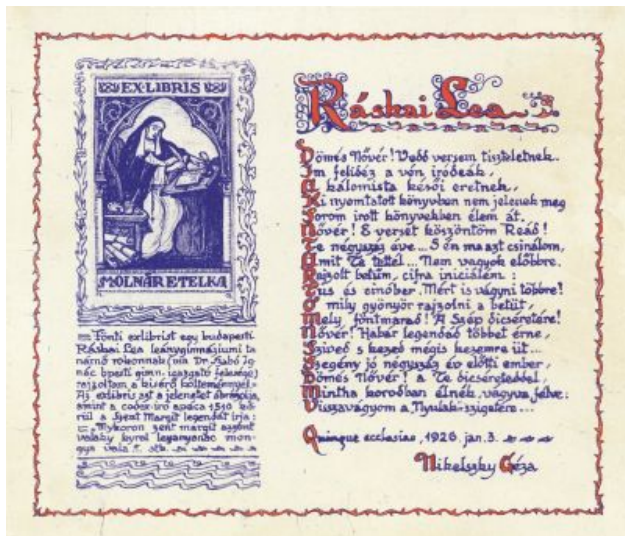 EX·LIBRIS
MOLNÁR ETELKA
Fonti exlibrist egy budapesti
Ráskai Lea leánygimnáziumi ta
nárnő rokonnak (ma Dr. Szabó Ig
nác bpesti gimn. igazgató felesége)
rajzoltam a kisérő költeménnyel.
Az exlibris azt a jelenetet ábrázolja,
amint a codex-iró apáca 1510 kö-
rül a Szent Margit legendát irja:
Mykoron zent margit azzont
valahy kyral leyanyanac mon-
gya vala
Ráskai Lea
Dömés Nővér! Vedd versem tiszteletnek.
Im felidéz a vén iródeák,
A kálomista késői eretnek,
Ki nyomtatott könyvben nem jelenek meg
Sorom irott könyvekben élem át.
Nővér! E verset köszöntöm Reád!
Te négyszáz éve... S én ma azt csinálom,
Amit Te tettél... Nem vagyok előbbre.
Rajzolt betüm, cifra iniciálém:
Tus és cinóber. Mért is vágyni többre!
Ó mily gyönyör rajzolni a betüt,
Mely föntmarad! A Szép dicséretére!
Nővér! Habár legendád többet érne,
Szived s kezed mégis kezemre üt...
Szegény jó négyszáz év előtti ember,
Dömés Nővér! a Te dicséreteddel,
Mintha korodban élnék, vágyva, félve:
Visszavágyom a Nyulak-szigetére...
Quinque ecclesiae, 1926. jan. 3.
Nikelszky Géza